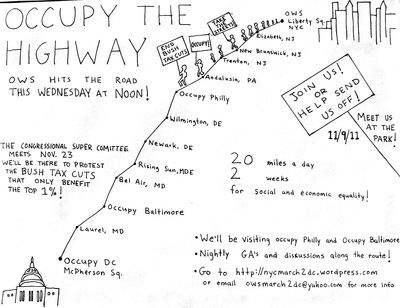 OCCUPY THE
HIGHWAY
OWS HITS THE ROAD
THIS WEDNESDAY AT NOON!
END
BUSH
TAX CUTS
OCCUPY!
TAKE
THE
STREETS
OWS
Liberty Sq.
NYC
Elizabeth, NJ
New Brunswick, NJ
Trenton, NJ
Andalusia, PA
Occupy Philly
Wilmington, DE
Newark, DE
Rising Sun, MDE
Bel Air, MD
Occupy Baltimore
Laurel, MD
Occupy DC
McPherson Sq.
JOIN US!
OR
HELP SEND
US OFF!
MEET US
AT THE
PARK!
11/9/11
THE CONGRESSIONAL SUPER COMITTEE
MEETS NOV. 23
WE'LL BE THERE TO PROTEST
THE BUSH TAX CUTS
THAT ONLY BENEFIT
THE TOP 1%!
20 miles a day
2 weeks
for social and economic equality!
• We'll be visiting occupy Philly and Occupy Baltimore
• Nightly GA's and discussions along the route!
• Go to http://nycmarch2dc.wordpress.com
or email owsmarch2dc@yahoo.com for more info